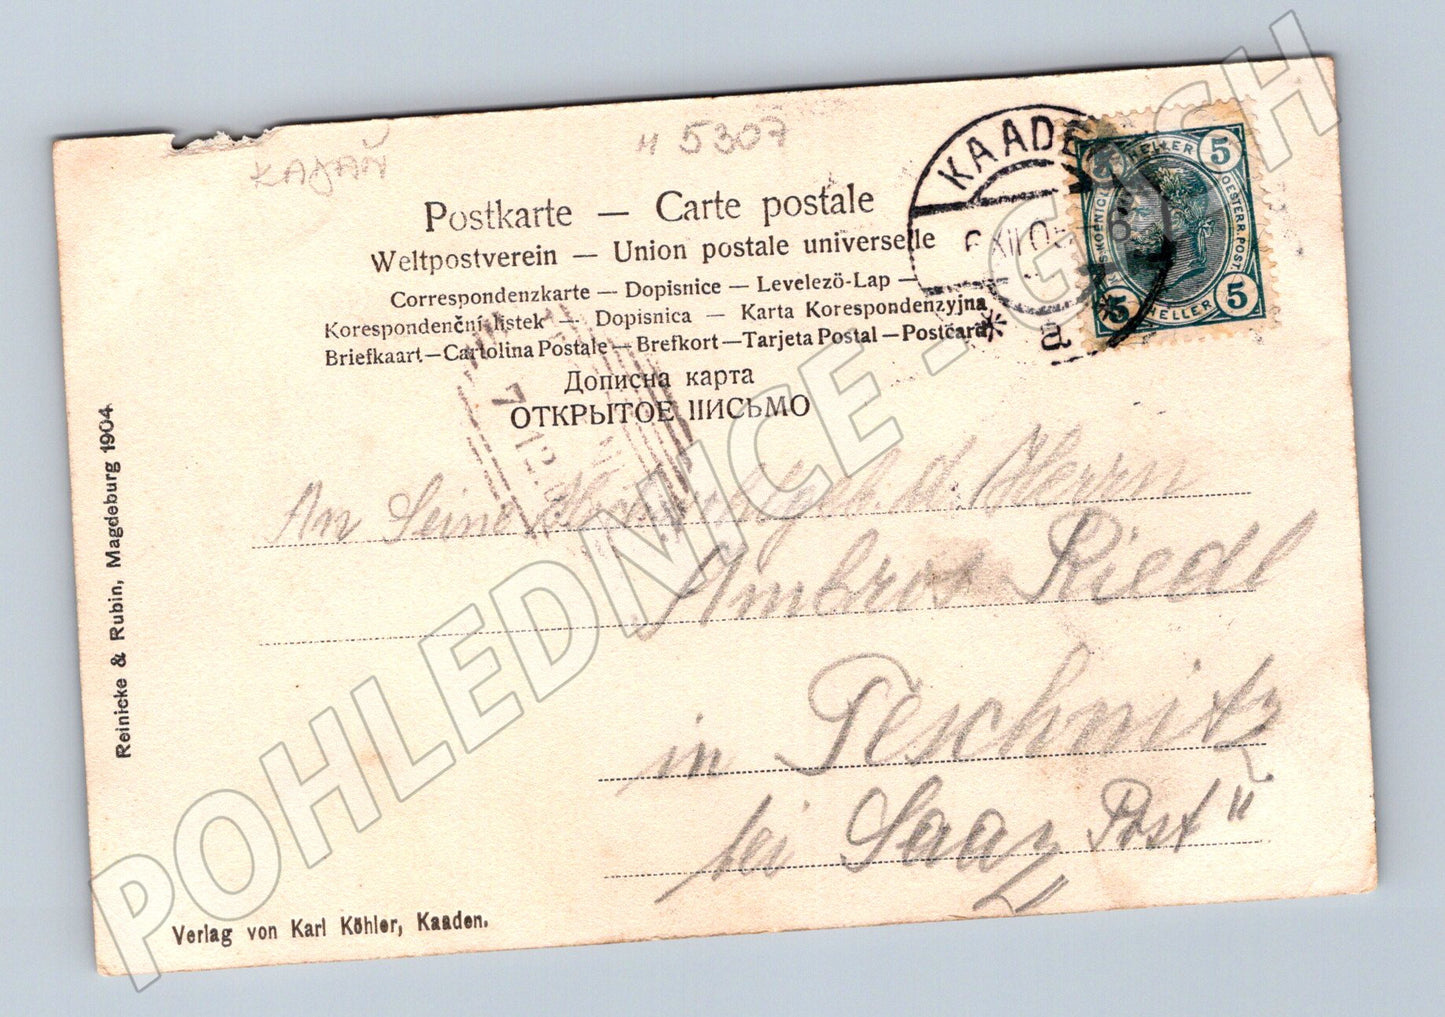 KADAŇ
H 5307
Postkarte — Carte postale
Weltpostverein — Union postale universelle
Correspondenzkarte — Dopisnice — Levelezö-Lap —
Korespondenční listek — Dopisnica — Karta Korespondenzyjna
Briefkaart — Cartolina Postale — Brefkort — Tarjeta Postal — Postcard
Дописна карта
ОТКРЫТОЕ ПИСЬМО
KAADEN
XII 05
5 HELLER 5
5 HELLER 5
OESTERR. POST
7 12
An Seine Herrn
Ambros Riedl
in Peschnitz
bei Saaz Post "
Reinicke & Rubin, Magdeburg 1904
Verlag von Karl Köhler, Kaaden.
POHLEDNICE - G CH